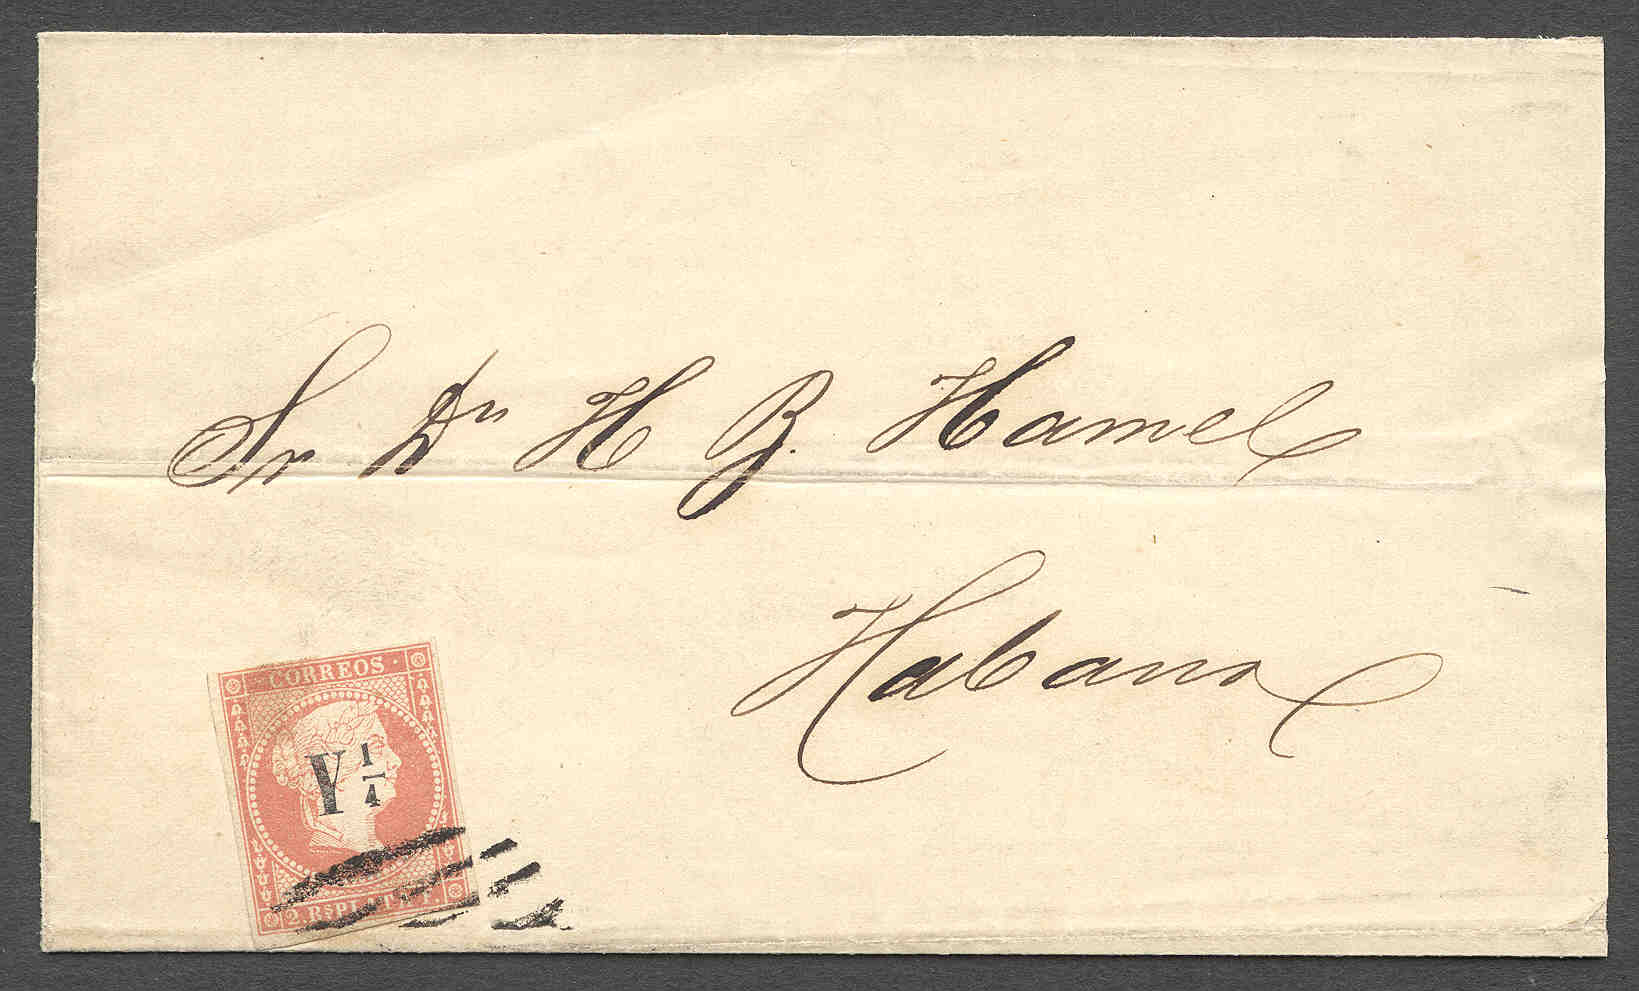 Sr Dn H B. Hamel
Habana
CORREOS
Y 1/4
2. Rs PLATA F.